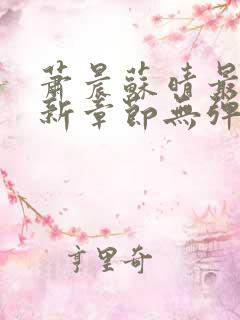 蕭晨蘇晴最
新章節無彈
亨里奇